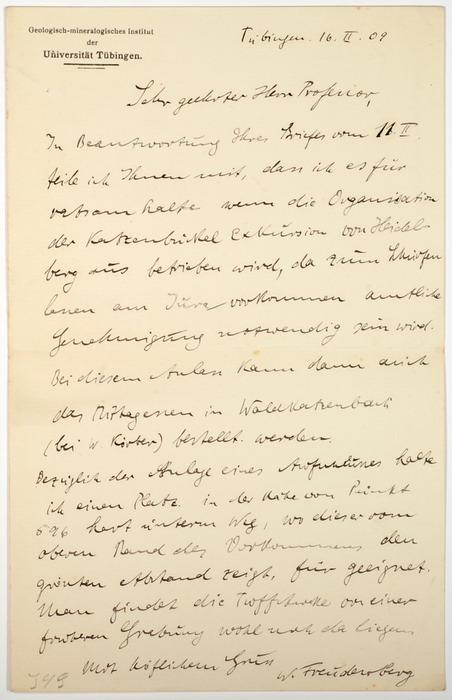 Geologisch-mineralogisches Institut
der
Universität Tübingen.
Tübingen. 16. II. 09
Sehr geehrter Herr Professor,
In Beantwortung Ihres Briefes vom 11. II.
teile ich Ihnen mit, dass ich es für
ratsam halte wenn die Organisation
der Katzenbuckel Exkursion von Heidel-
berg aus betrieben wird, da zum Schürfen
am Jura vorkommen amtliche
Genehmigung notwendig sein wird.
Bei diesem Anlass kann dann auch
das Mittagessen in Waldkatzenbach
(bei W. ) bestellt werden.
Bezüglich der Anlage eines halte
ich einen Platz in der Nähe von Punkt
596 hart unterm Weg, wo dieser vom
oberen Rand des Vorkommens den
grössten Abstand zeigt, für geeignet.
Man findet die von einer
früheren Grabung wohl noch da liegen.
Mit höflichem Gruss
W. Freudenberg
349